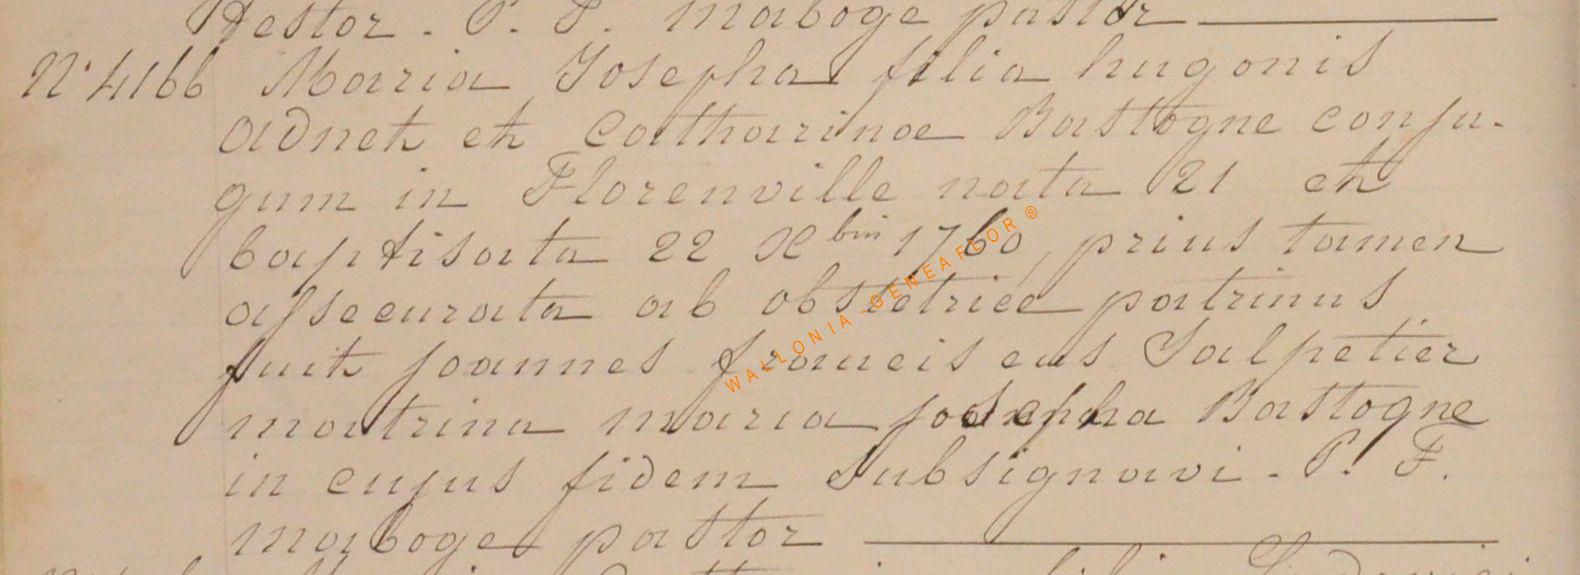 Nestor. P. F. maboge pastor
N° 4166 Maria Josepha filia hugonis
adnet et Catharinae Bastogne conju-
gum in Florenville nata 21 et
baptisata 22 Xbris 1760, prius tamen
assecurata ab obstetrice patrinus
fuit joannes franciscus Salpetier
matrina maria josepha Bastogne
in cujus fidem subsignavi - P. F.
maboge pastor
WALLONIA - GENEAFLOR ®